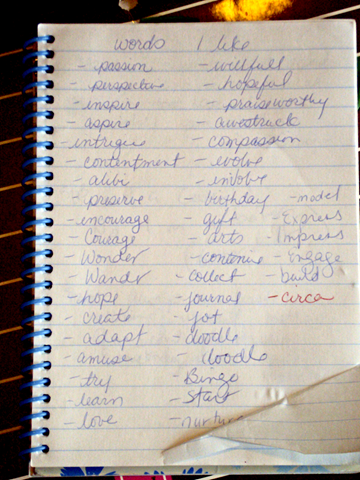 words I like
- passion
- perspective
- inspire
- aspire
- intrigue
- contentment
- alibi
- preserve
- encourage
- Courage
- Wonder
- Wander
- hope
- create
- adapt
- amuse
- try
- learn
- love
- willfull
- hopeful
- praiseworthy
- awestruck
- compassion
- evolve
- involve
- birthday
- gift
- arts
- collect
- journal
- jot
- doodle
- doodle
- Bingo
- Start
- nurture
- model
- Express
- Impress
- Engage
- build
- circa